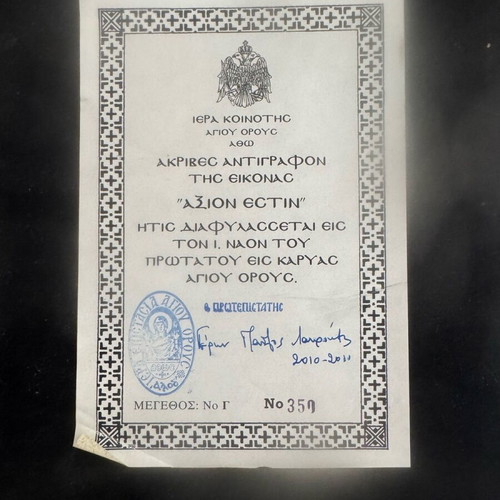 ΙΕΡΑ ΚΟΙΝΟΤΗΣ
ΑΓΙΟΥ ΟΡΟΥΣ
ΑΘΩ
ΑΚΡΙΒΕΣ ΑΝΤΙΓΡΑΦΟΝ
ΤΗΣ ΕΙΚΟΝΑΣ
"ΑΞΙΟΝ ΕΣΤΙΝ"
ΗΤΙΣ ΔΙΑΦΥΛΑΣΣΕΤΑΙ ΕΙΣ
ΤΟΝ Ι. ΝΑΟΝ ΤΟΥ
ΠΡΩΤΑΤΟΥ ΕΙΣ ΚΑΡΥΑΣ
ΑΓΙΟΥ ΟΡΟΥΣ.
Ο ΠΡΩΤΕΠΙΣΤΑΤΗΣ
Γέρων
2010-2011
ΙΕΡΑ ΕΠΙΣΤΑΣΙΑ ΑΓΙΟΥ ΟΡΟΥΣ ΑΘΩ
ΜΕΓΕΘΟΣ: Νο Γ Νο 350